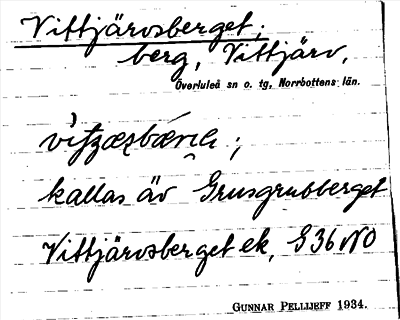 Vittjärvsberget;
berg, Vittjärv,
Överluleå sn o. tg, Norrbottens län.
kallas äv Grusgrubberget
Vittjärvsberget ek, S 36 NO
GUNNAR PELLIJEFF 1934.